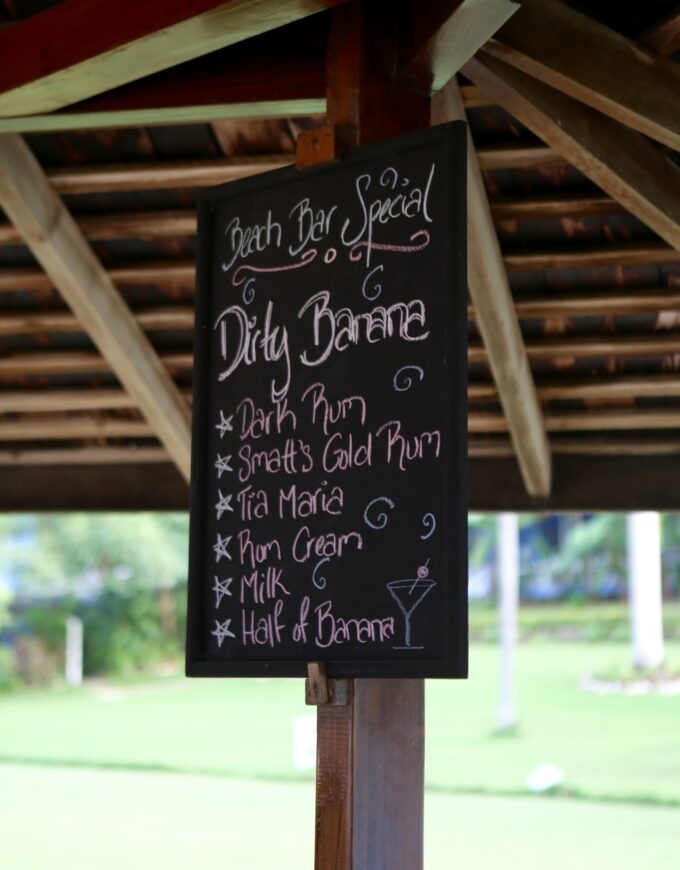 Beach Bar Special
Dirty Banana
Dark Rum
Smatt's Gold Rum
Tia Maria
Rum Cream
Milk
Half of Banana